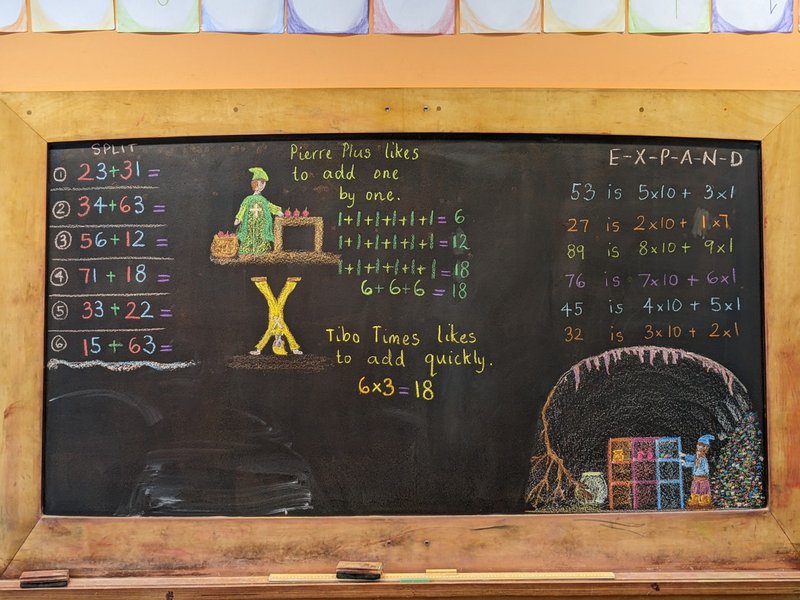 SPLIT
① 23+31 =
② 34+63 =
③ 56+12 =
④ 71+18 =
⑤ 33+22 =
⑥ 15+63 =
Pierre Plus likes
to add one
by one.
1+1+1+1+1+1 = 6
1+1+1+1+1+1 = 12
1+1+1+1+1+1 = 18
6+6+6 = 18
Tibo Times likes
to add quickly.
6×3=18
E-X-P-A-N-D
53 is 5×10 + 3×1
27 is 2×10 + 1×7
89 is 8×10 + 9×1
76 is 7×10 + 6×1
45 is 4×10 + 5×1
32 is 3×10 + 2×1